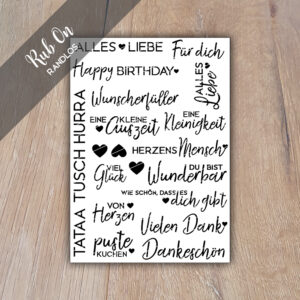 Rub On
RANDLOS
ALLES LIEBE
Für dich
Happy BIRTHDAY
ALLES
Liebe
Wunscherfüller
EINE KLEINE
Auszeit
EINE
Kleinigkeit
HERZENS Mensch
VIEL
Glück
DU BIST
Wunderbar
WIE SCHÖN, DASS ES
dich gibt
VON
Herzen
Vielen Dank
puste
KUCHEN
Dankeschön
TATAA TUSCH HURRA